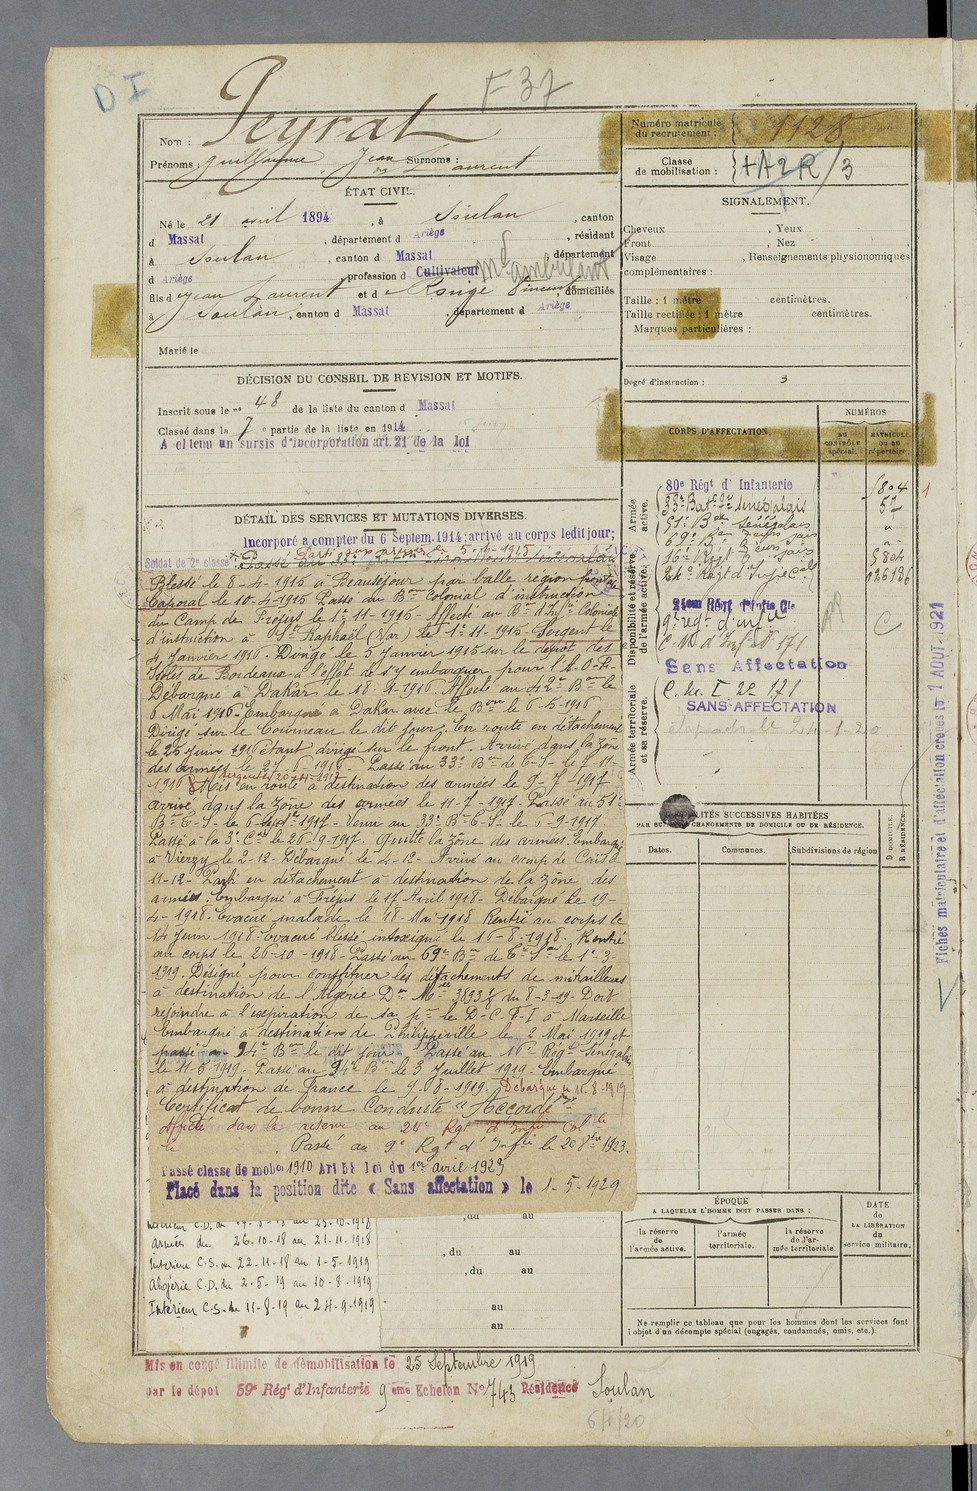 D I
F 37
Nom : Peyrat
Prénoms : Guillaume Jean Surnoms : Laurent
ÉTAT CIVIL.
Né le 21 avril 1894, à Soulan, canton
d Massat, département d Ariège, résidant
à Soulan, canton d Massat, département
d Ariège profession d Cultivateur Md ambulant
fils d Jean Laurent et d Rouge, domiciliés
à Soulan, canton d Massat, département d Ariège
Marié le
DÉCISION DU CONSEIL DE REVISION ET MOTIFS.
Inscrit sous le n° 48 de la liste du canton d Massat
Classé dans la 7e partie de la liste en 1914
A obtenu un sursis d'incorporation art. 21 de la loi
DÉTAIL DES SERVICES ET MUTATIONS DIVERSES.
Incorporé a compter du 6 Septem. 1914; arrivé au corps ledit jour;
Soldat de 2e classe
Parti aux armées le 5-4-1915
Blessé le 8-4-1915 à Beauséjour par balle région
Caporal le 10-4-1915 Passé du Bon Colonial d'instruction
du Camp de Fréjus le 1er 11-1915- Affecté au Bon d'Inf. Coloniale
d'instruction à St Raphaël (Var) le 1er 11-1915- Sergent le
4 Janvier 1916. Dirigé le 5 Janvier 1915 sur le dépôt des
Isolés de Bordeaux à l'effet de s'y embarquer pour l'A.O.F.
Débarqué à Dakar le 18-9-1916 Affecté au 42e Bon le
6 Mai 1916- Embarqué à Dakar avec le Bon le 6-5-1916
Dirigé sur le Courneau le dit jour. En route en détachement
le 25 Juin 1916 étant dirigé sur le front. Arrivé dans la zône
des armées le 27-6-1916- Passé au 33e Bon de C-S- le 7-11-
1916 Mis en route à destination des armées le 9-7-1917
arrivé dans la zône des armées le 11-7-1917- Passé au 51e
Bon C-S- le 6 Septbre 1917- Venu au 33e Bon C-S- le 6-9-1917.
Passé à la 3e Cie le 26-9-1917. Quitte la zône des armées. Embarqué
à Vierzy le 2-12- Débarqué le 4-12- Arrivé au camp de Caïs le
11-12- Parti en détachement à destination de la zône des
armées. Embarqué à Fréjus le 17 Avril 1918- Débarqué le 19-
4-1918- Evacué malade le 18 Mai 1918 Rentré au corps le
14 Juin 1918- Evacué blessé intoxiqué le 16-8-1918. Rentré
au corps le 26-10-1918- Passé au 69e Bon de le 1er 3-
1919. Désigné pour constituer les détachements de mitrailleurs
à destination de l'Algérie Don Melle 3893 du 8-3-19- Doit
rejoindre à l'expiration de sa pon le D-C-F-I à Marseille
Embarqué à destination de Philippeville le 2 Mai 1919 et
passé au 94e Bon le dit jour Passé au 16e Régt Sénégalais
le 11-5-1919- Passé au 94e Bon le 3 Juillet 1919. Embarqué
à destination de France le 9-8-1919. Débarqué le 10-8-1919
Certificat de bonne Conduite "Accordé"
Affecté dans la réserve au 24e Rgt d'Infie Colle
le Passé au 9e Rgt d'Infie le 20 1923.
Passé classe de mobon 1910 Art 58 loi du 1er avril 1923
Placé dans la position dite « Sans affectation » le 1-5-1929
Intérieur C.D. du 17-8-18 au 25-10-1918
Armées du 26-10-18 au 21-11-1918
Intérieur C.S. du 22-11-18 au 1-5-1919
Algérie C.D. du 2-5-19 au 10-8-1919
Intérieur C.S. du 11-8-19 au 24-9-1919
, du au
, du au
, du au
au
au
Mis en congé illimité de démobilisation le 25 Septembre 1919
par le dépôt 59e Régt d'Infanterie 9eme Echelon No 743 Résidence Soulan
6/1/20
Numéro matricule du recrutement : 1128
Classe de mobilisation : +A2R/3
SIGNALEMENT.
Cheveux , Yeux
Front , Nez ,
Visage , Renseignements physionomiques
complémentaires :
Taille : 1 mètre centimètres.
Taille rectifiée : 1 mètre centimètres.
Marques particulières :
Degré d'instruction : 3
CORPS D'AFFECTATION.
NUMÉROS
au CONTRÔLE spécial.
MATRICULE ou au répertoire.
Armée active.
80e Régt d'Infanterie 5804
33e Bat. Sénégalais 57
51e Bon Sénégalais "
69e Bon "
16e Régt 5804
24e Régt d'Infie Cale 126186
Disponibilité et réserve de l'armée active.
24em Régt d'Infie Cle
9e regt d'infie
C.M d'Inf. N° 171
Sans Affectation
C
Armée territoriale et sa réserve.
C. M. I. no 171
SANS AFFECTATION
24-1-20
LOCALITÉS SUCCESSIVES HABITÉES
PAR SUITE DE CHANGEMENTS DE DOMICILE OU DE RÉSIDENCE.
Dates.
Communes.
Subdivisions de région
D DOMICILE.
R RÉSIDENCE.
ÉPOQUE
A LAQUELLE L'HOMME DOIT PASSER DANS :
la réserve de l'armée active.
l'armée territoriale.
la réserve de l'armée territoriale.
DATE de LA LIBÉRATION du service militaire.
Ne remplir ce tableau que pour les hommes dont les services font
l'objet d'un décompte spécial (engagés, condamnés, omis, etc.).
Fiches matriculaire et d'affectation créées le 7 AOUT 1921